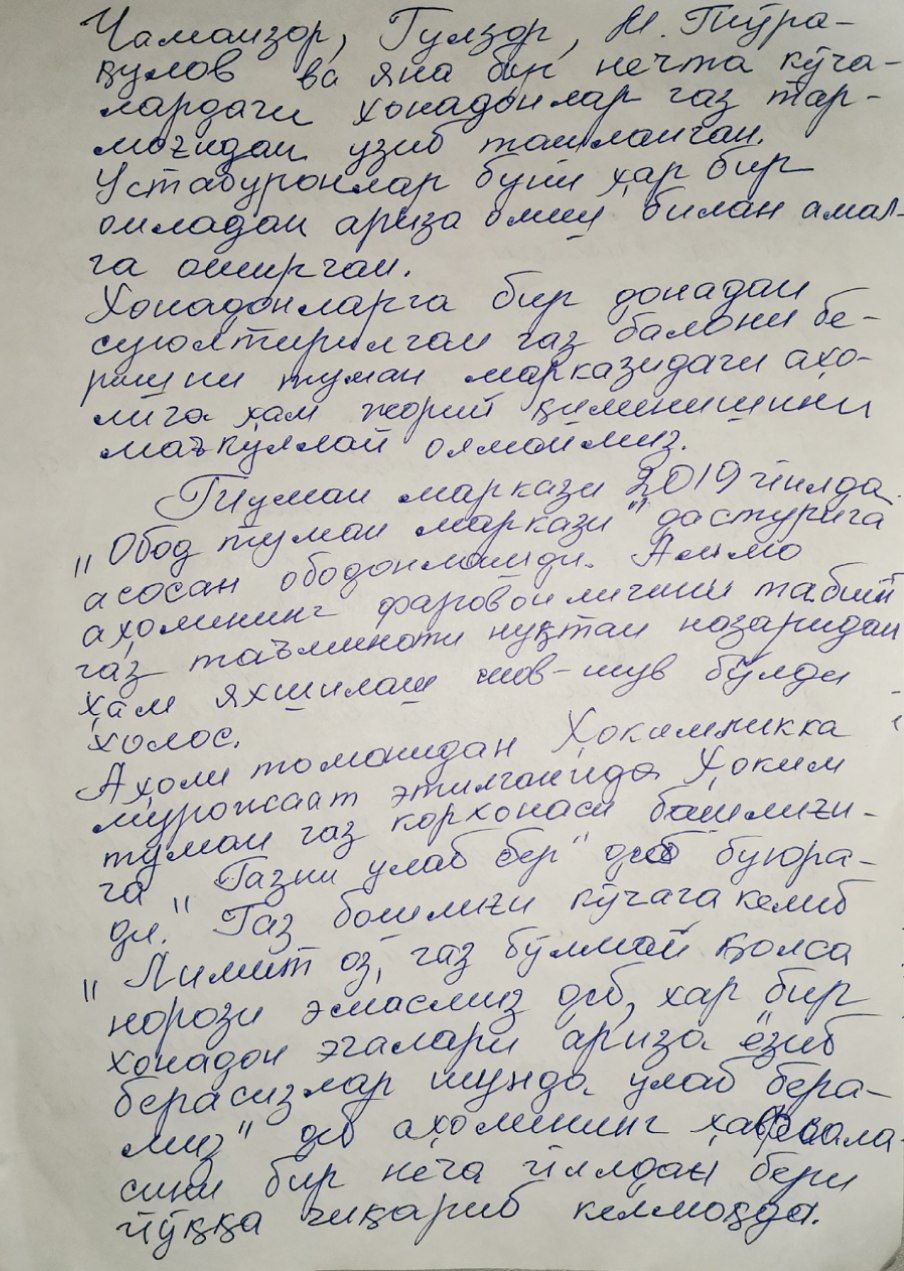 Чаманзор, Гулзор, М. Тўра-
қулов ва яна бир нечта кўча-
лардаги хонадонлар газ тар-
моғидан узиб ташланган.
Устабуронлар буни ҳар бир
оиладан ариза олиш билан амал-
га оширган.
Хонадонларга бир донадан
суюлтирилган газ балони бе-
ришни туман марказидаги аҳо-
лига ҳам жорий қилинишини
маъқуллай олмаймиз.
Туман маркази 2019 йилда
"Обод туман маркази" дастурига
асосан ободонлашди. Аммо
аҳолининг фаровонлигини табиий
газ таъминоти нуқтаи назаридан
ҳам яхшилаш шов-шув бўлди
холос.
Аҳоли томонидан Ҳокимликка
мурожаат этилганида Ҳоким
туман газ корхонаси бошлиғи-
га "Газни улаб бер" деб буюра-
ди." Газ бошлиғи кўчага келиб
"Лимит оз, газ бўлмай қолса
норози эмасмиз деб, ҳар бир
хонадон эгалари ариза ёзиб
берасизлар шунда улаб бера-
миз" деб аҳолининг ҳафсала-
сини бир неча йилдан бери
йўққа чиқариб келмоқда.